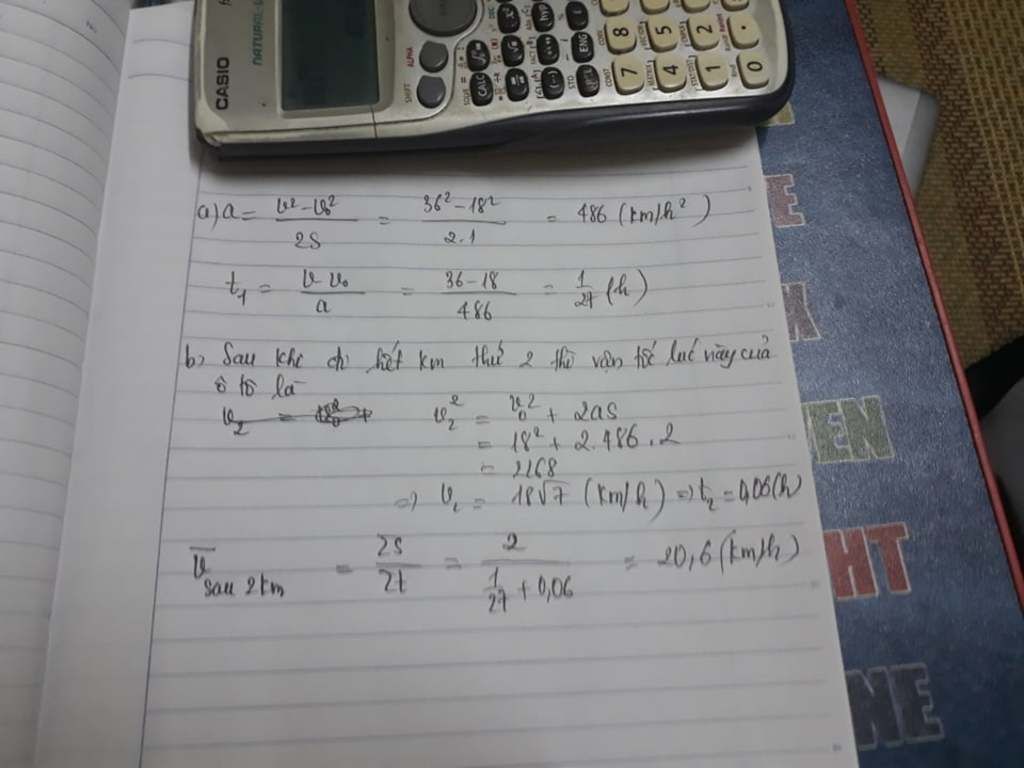 CASIO
NATURAL-
SHIFT
ALPHA
CALC
ENG
STO
7 8
4 5
1 2
0 .
a) a = (v² - v₀²)/2S = (36² - 18²)/2.1 = 486 (km/h²)
t₁ = (v - v₀)/a = (36 - 18)/486 = 1/27 (h)
b, Sau khi đi hết km thứ 2 thì vận tốc lúc này của
ô tô là
v₂ =
v₂² = v₀² + 2as
= 18² + 2.486.2
= 2268
=) v₂ = 18√7 (km/h) => t₂ = 0,06 (h)
v̄ sau 2km = 2s/2t = 2/(1/27 + 0,06) = 20,6 (km/h)
E
K
EN
HT
NE